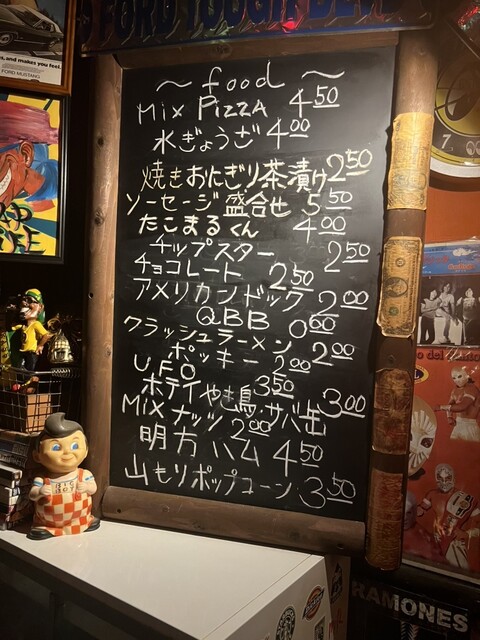 FORD TOUGH
s, and makes you feel.
FORD MUSTANG
~ food ~
Mix PIZZA 450
水ぎょうざ 400
焼きおにぎり茶漬け 250
ソーセージ盛合せ 550
たこまるくん 400
チップスター 250
チョコレート 250
アメリカンドック 200
QBB 060
クラッシュラーメン 200
ポッキー 200
U.F.O 350
ホテイやき鳥・サバ缶 300
Mix ナッツ 200
明方ハム 450
山もりポップコーン 350
BIG BOY
RAMONES